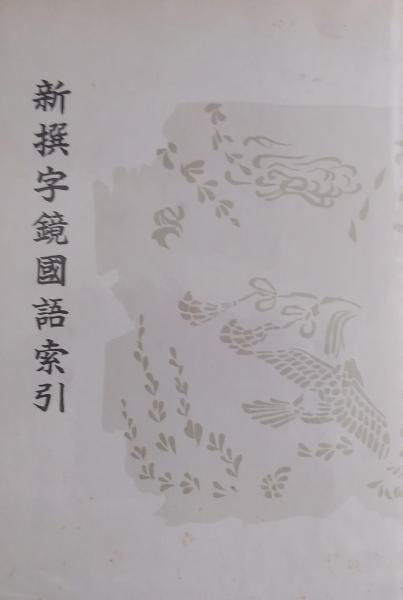 新撰字鏡國語索引